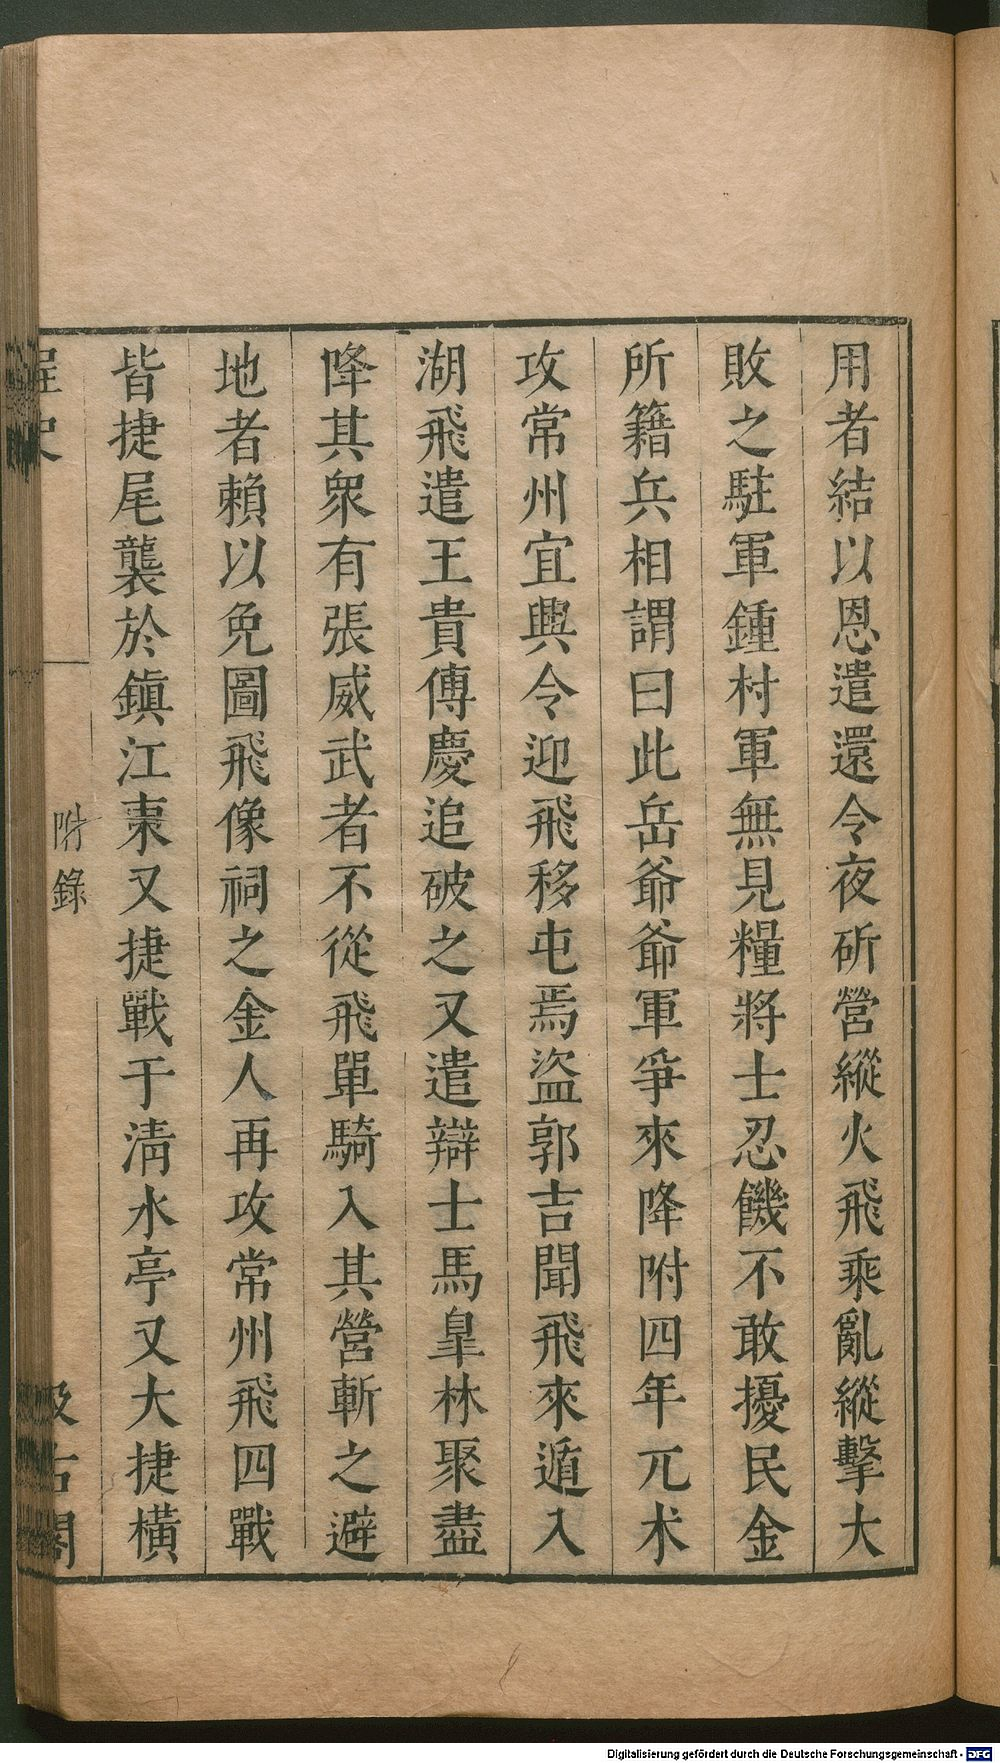 用者結以恩遣還令夜斫營縱火飛乘亂縱擊大
敗之駐軍鍾村軍無見糧將士忍饑不敢擾民金
所籍兵相謂曰此岳爺爺軍爭來降附四年兀术
攻常州宜興令迎飛移屯焉盜郭吉聞飛來遁入
湖飛遣王貴傅慶追破之又遣辯士馬臯林聚盡
降其衆有張威武者不從飛單騎入其營斬之避
地者賴以免圖飛像祠之金人再攻常州飛四戰
皆捷尾襲於鎭江東又捷戰于淸水亭又大捷橫
桯史
附錄
汲古閣
Digitalisierung gefördert durch die Deutsche Forschungsgemeinschaft - DFG